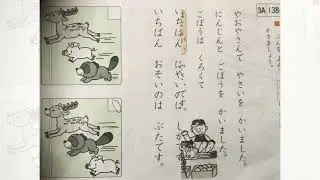 3A 138
やおやさんで やさいを かいました。
にんじんと ごぼうを かいました。
ごぼうは くろくて
いちばん はやいのは、しか
いちばん おそいのは ぶたです。